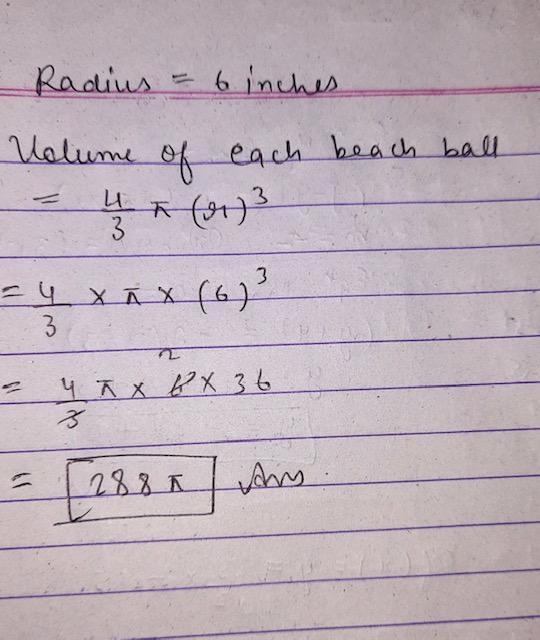 Radius = 6 inches
Volume of each beach ball
= 4/3 π (r)³
= 4/3 × π × (6)³
= 4/3 π × 6 2 × 36
= 288 π Ans